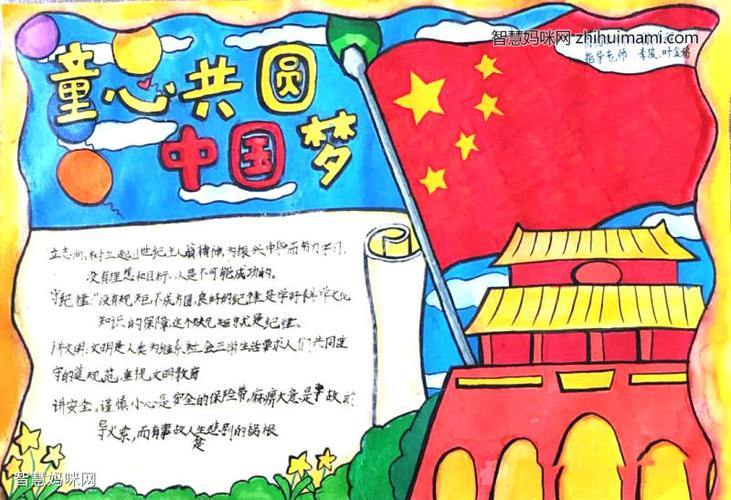 智慧妈咪网 zhihuimami.com
指导老师 李俊、叶金
童心共圆
中国梦
立志向、树立起世纪主人翁精神,为振兴中华而努力学习,
没有理想和目标,人是不可能成功的。
守纪律:"没有规矩不成方圆,良好的纪律是学好科学文化
知识的保障,这个规矩就是纪律。
讲文明:文明是人类为维系社会正常生活要求人们共同遵
守的道规范,重视文明教育
讲安全。谨慎小心是安全的保险带,麻痹大意是事故的
导火索,而有事故人生悲剧的祸根
是
智慧妈咪网